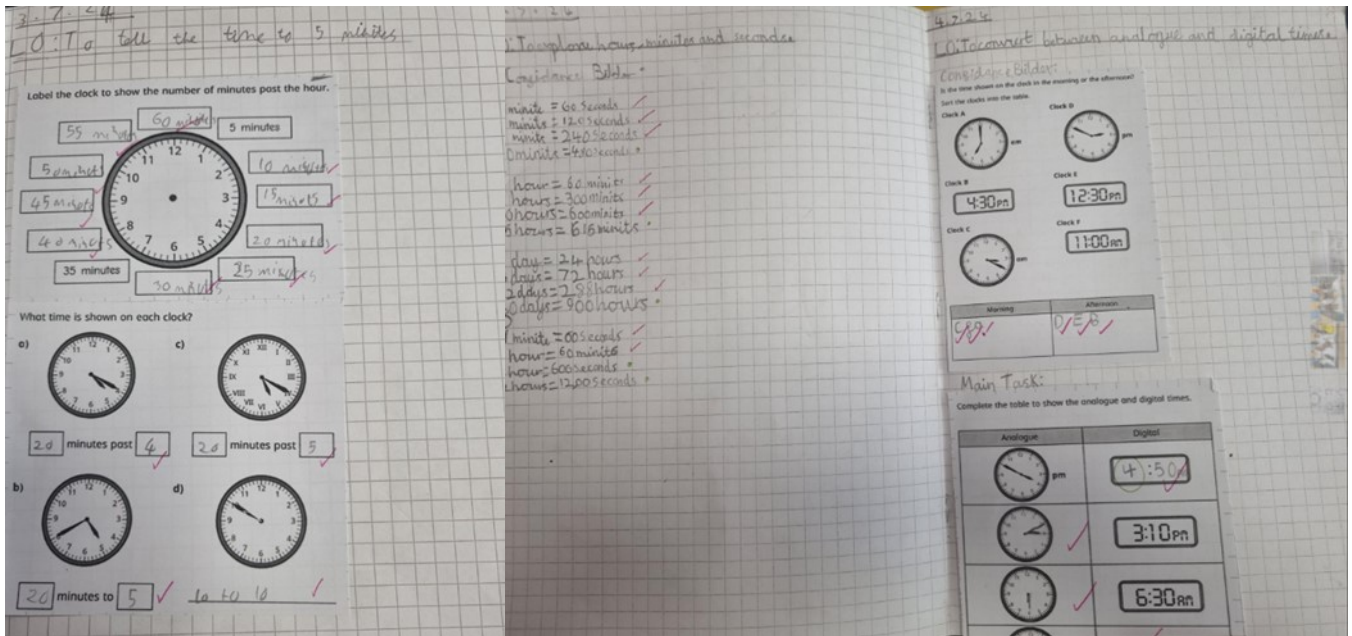 3.7.24
LO:To tell the time to 5 minites
Label the clock to show the number of minutes past the hour.
60 minutes
55 minutes
5 minutes
50 minuts
10 minutes
45 minuts
15 minuts
40 minuts
20 minutes
35 minutes
25 minutes
30 minutes
12 1 2 3 4 5 6 7 8 9 10 11
What time is shown on each clock?
a)
12 1 2 3 4 5 6 7 8 9 10 11
20 minutes past 4
c)
XII I II III IV V VI VII VIII IX X XI
20 minutes past 5
b)
12 1 2 3 4 5 6 7 8 9 10 11
20 minutes to 5
d)
12 1 2 3 4 5 6 7 8 9 10 11
10 to 10
hours, minutes and seconds.
Bilder
minite = 60 seconds
minits = 120 seconds
minits = 240 seconds
minits = 480 seconds
hour = 60 minits
hours = 300 minits
hours = 600 minits
hours = 615 minits
day = 24 hours
days = 72 hours
2 days = 288 hours
0 days = 900 hours
minite = 60 seconds
hour = 60 minits
hour = 600 seconds
hours = 1200 seconds
4.7.24
LO:To convert between analogue and digital times.
Considance Bilder:
Is the time shown on the clock in the morning or the afternoon?
Sort the clocks into the table.
Clock A
am
Clock D
pm
Clock B
4:30pm
Clock E
12:30pm
Clock C
am
Clock F
11:00am
Morning Afternoon
D, E, B
Main Task:
Complete the table to show the analogue and digital times.
Analogue Digital
pm 4:50
3:10pm
6:30am